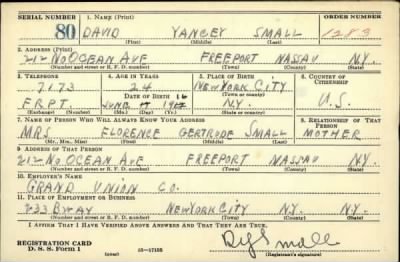 SERIAL NUMBER 1. NAME (Print) ORDER NUMBER
80 DAVID YANCEY SMALL 1283
(First) (Middle) (Last)
2. ADDRESS (Print)
212 NO OCEAN AVE FREEPORT NASSAU N.Y.
(Number and street or R. F. D. number) (Town) (County) (State)
3. TELEPHONE 4. AGE IN YEARS 5. PLACE OF BIRTH 6. COUNTRY OF CITIZENSHIP
7173 24 NEW YORK CITY
DATE OF BIRTH 16 (Town or county)
FRPT. JUNE N.Y. U.S.
(Exchange) (Number) (Mo.) (Day) (Yr.) (State or country)
7. NAME OF PERSON WHO WILL ALWAYS KNOW YOUR ADDRESS 8. RELATIONSHIP OF THAT PERSON
MRS FLORENCE GERTRUDE SMALL MOTHER
(Mr., Mrs., Miss) (First) (Middle) (Last)
9. ADDRESS OF THAT PERSON
212 NO OCEAN AVE FREEPORT NASSAU N.Y.
(Number and street or R. F. D. number) (Town) (County) (State)
10. EMPLOYER'S NAME
GRAND UNION CO.
11. PLACE OF EMPLOYMENT OR BUSINESS
233 BWAY NEW YORK CITY N.Y. N.Y.
(Number and street or R. F. D. number) (Town) (County) (State)
I AFFIRM THAT I HAVE VERIFIED ABOVE ANSWERS AND THAT THEY ARE TRUE.
REGISTRATION CARD
D. S. S. Form 1 (over) (Registrant's signature)